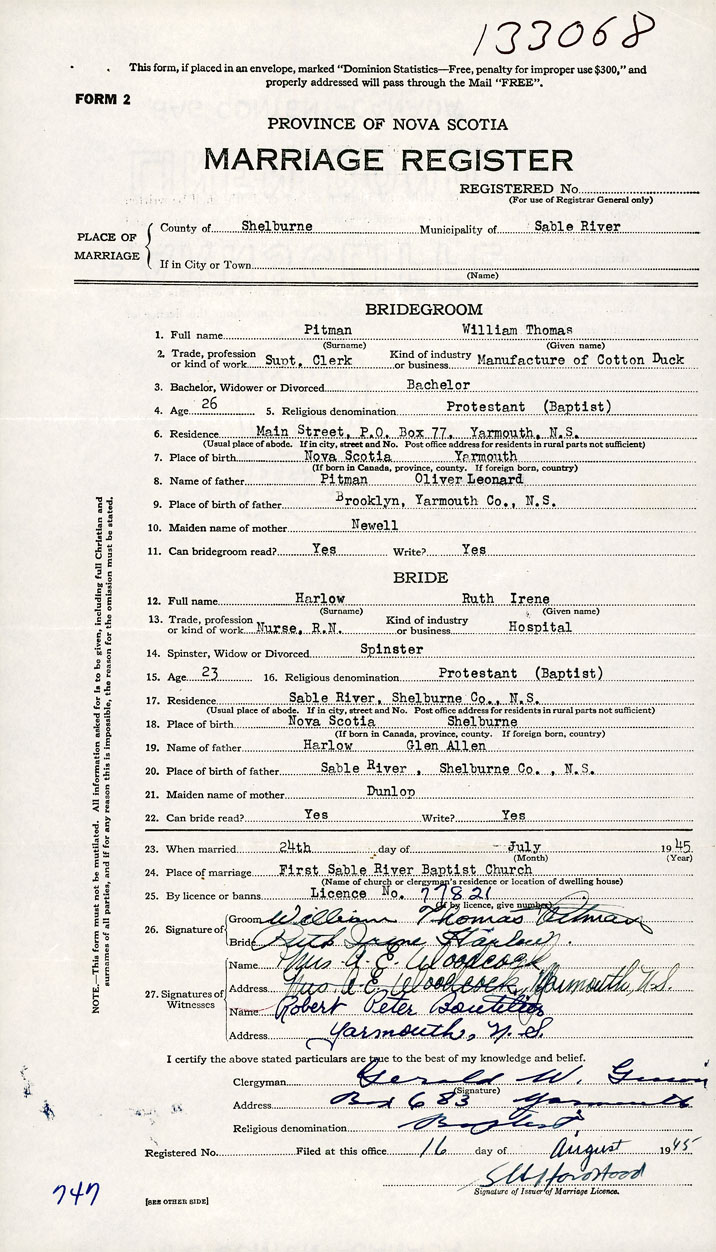 133068
This form, if placed in an envelope, marked “Dominion Statistics—Free, penalty for improper use $300,” and
properly addressed will pass through the Mail “FREE”.
FORM 2
PROVINCE OF NOVA SCOTIA
MARRIAGE REGISTER
REGISTERED No.
(For use of Registrar General only)
PLACE OF MARRIAGE
County of Shelburne Municipality of Sable River
If in City or Town
(Name)
BRIDEGROOM
1. Full name Pitman William Thomas
(Surname) (Given name)
2. Trade, profession or kind of work Supt. Clerk Kind of industry or business Manufacture of Cotton Duck
3. Bachelor, Widower or Divorced Bachelor
4. Age 26 5. Religious denomination Protestant (Baptist)
6. Residence Main Street, P.O. Box 77, Yarmouth, N.S.
(Usual place of abode. If in city, street and No. Post office address for residents in rural parts not sufficient)
7. Place of birth Nova Scotia Yarmouth
(If born in Canada, province, county. If foreign born, country)
8. Name of father Pitman Oliver Leonard
9. Place of birth of father Brooklyn, Yarmouth Co., N.S.
10. Maiden name of mother Newell
11. Can bridegroom read? Yes Write? Yes
BRIDE
12. Full name Harlow Ruth Irene
(Surname) (Given name)
13. Trade, profession or kind of work Nurse, R.N. Kind of industry or business Hospital
14. Spinster, Widow or Divorced Spinster
15. Age 23 16. Religious denomination Protestant (Baptist)
17. Residence Sable River, Shelburne Co., N.S.
(Usual place of abode. If in city, street and No. Post office address for residents in rural parts not sufficient)
18. Place of birth Nova Scotia Shelburne
(If born in Canada, province, county. If foreign born, country)
19. Name of father Harlow Glen Allen
20. Place of birth of father Sable River , Shelburne Co. , N.S.
21. Maiden name of mother Dunlop
22. Can bride read? Yes Write? Yes
23. When married 24th day of July 1945
(Month) (Year)
24. Place of marriage First Sable River Baptist Church
(Name of church or clergyman's residence or location of dwelling house)
25. By licence or banns Licence No. 77821
(If by licence, give number)
26. Signature of
Groom William Thomas Pitman
Bride Ruth Irene Harlow
27. Signatures of Witnesses
Name Mrs. A. E. Woodcock
Address Mrs A E Woodcock, Yarmouth, N.S.
Name Robert Peter Boutilier
Address Yarmouth, N.S.
I certify the above stated particulars are true to the best of my knowledge and belief.
Clergyman Gerald W.
(Signature)
Address Box 683 Yarmouth
Religious denomination Baptist
Registered No. Filed at this office 16 day of August 1945
Signature of Issuer of Marriage Licence.
747
[SEE OTHER SIDE]
NOTE.—This form must not be mutilated. All information asked for is to be given, including full Christian and
surnames of all parties, and if for any reason this is impossible, the reason for the omission must be stated.